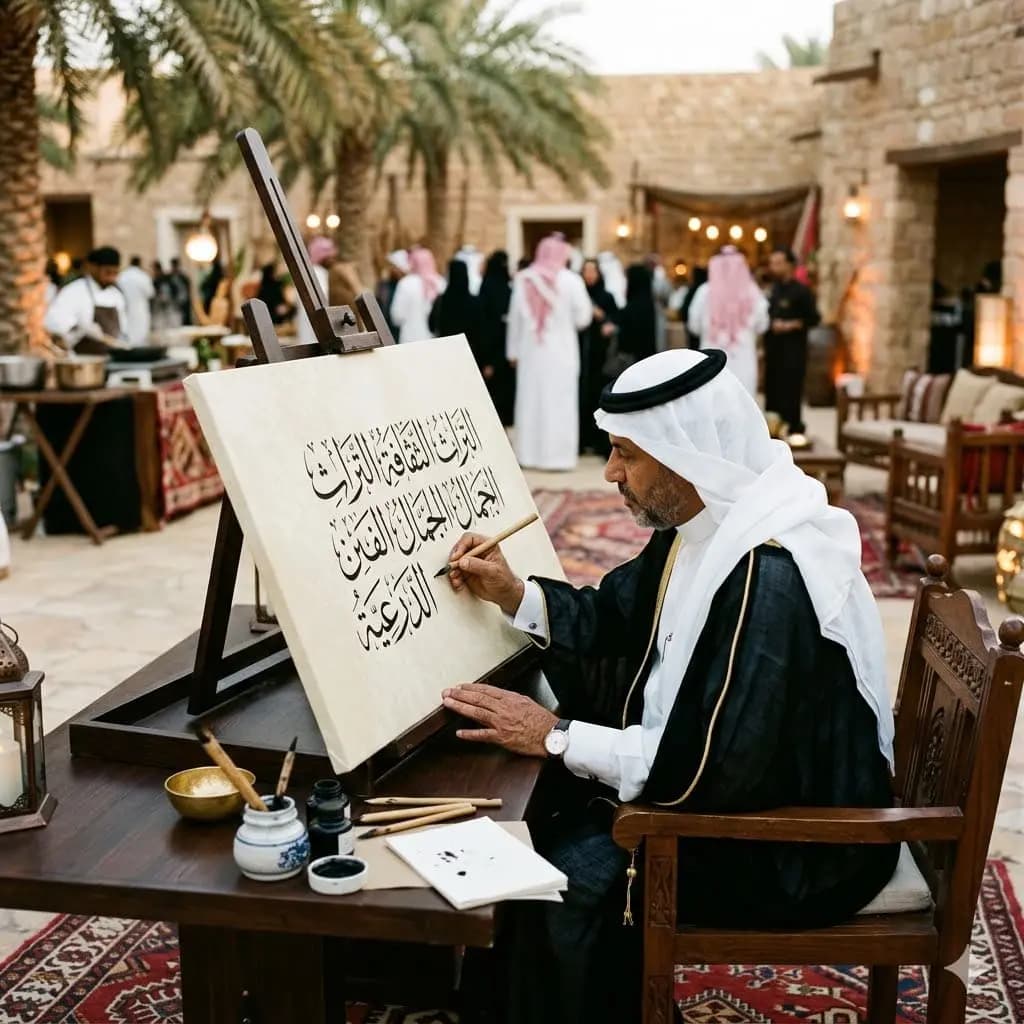 التراث الثقافة التراث
الجمال الجمال الفن
الدرعية